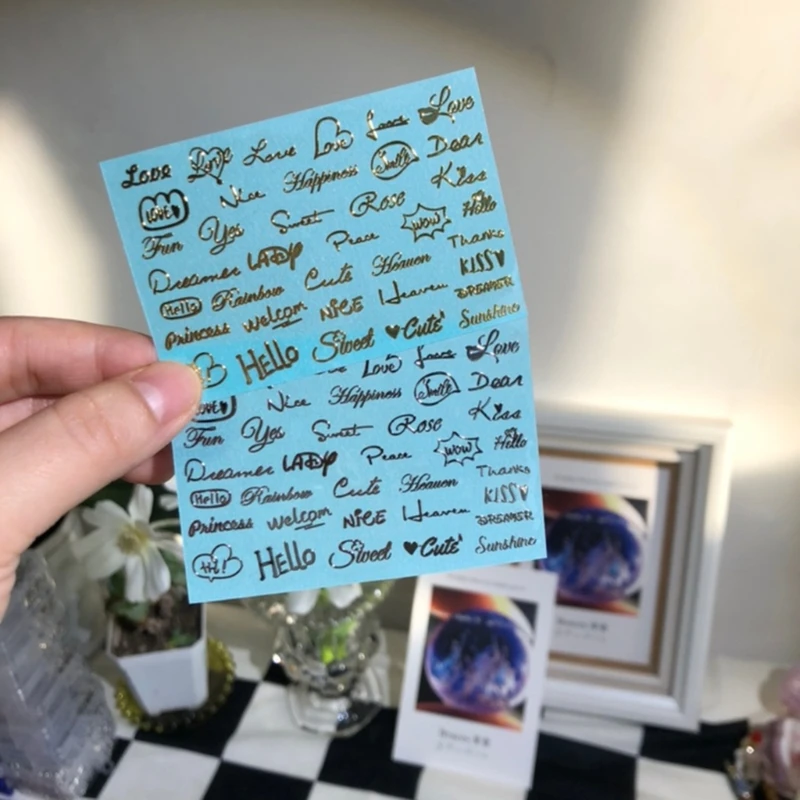 Love Love Love Love Love Love
LOVE Nice Happiness Smile Dear
Fun Yes Sweet Rose Kiss
Dreamer LADY Peace WOW! Hello
Hello Rainbow Cute Heaven Thanks
Princess welcom NiCE Heaven KISS
DREAMER
HELLO Sweet Cute' Sunshine
Love Love Love
LOVE Nice Happiness Smile Dear
Fun Yes Sweet Rose Kiss
Dreamer LADY Peace WOW! Hello
Hello Rainbow Cute Heaven Thanks
Princess welcom NiCE Heaven KISS
DREAMER
Hi! HELLO Sweet Cute' Sunshine